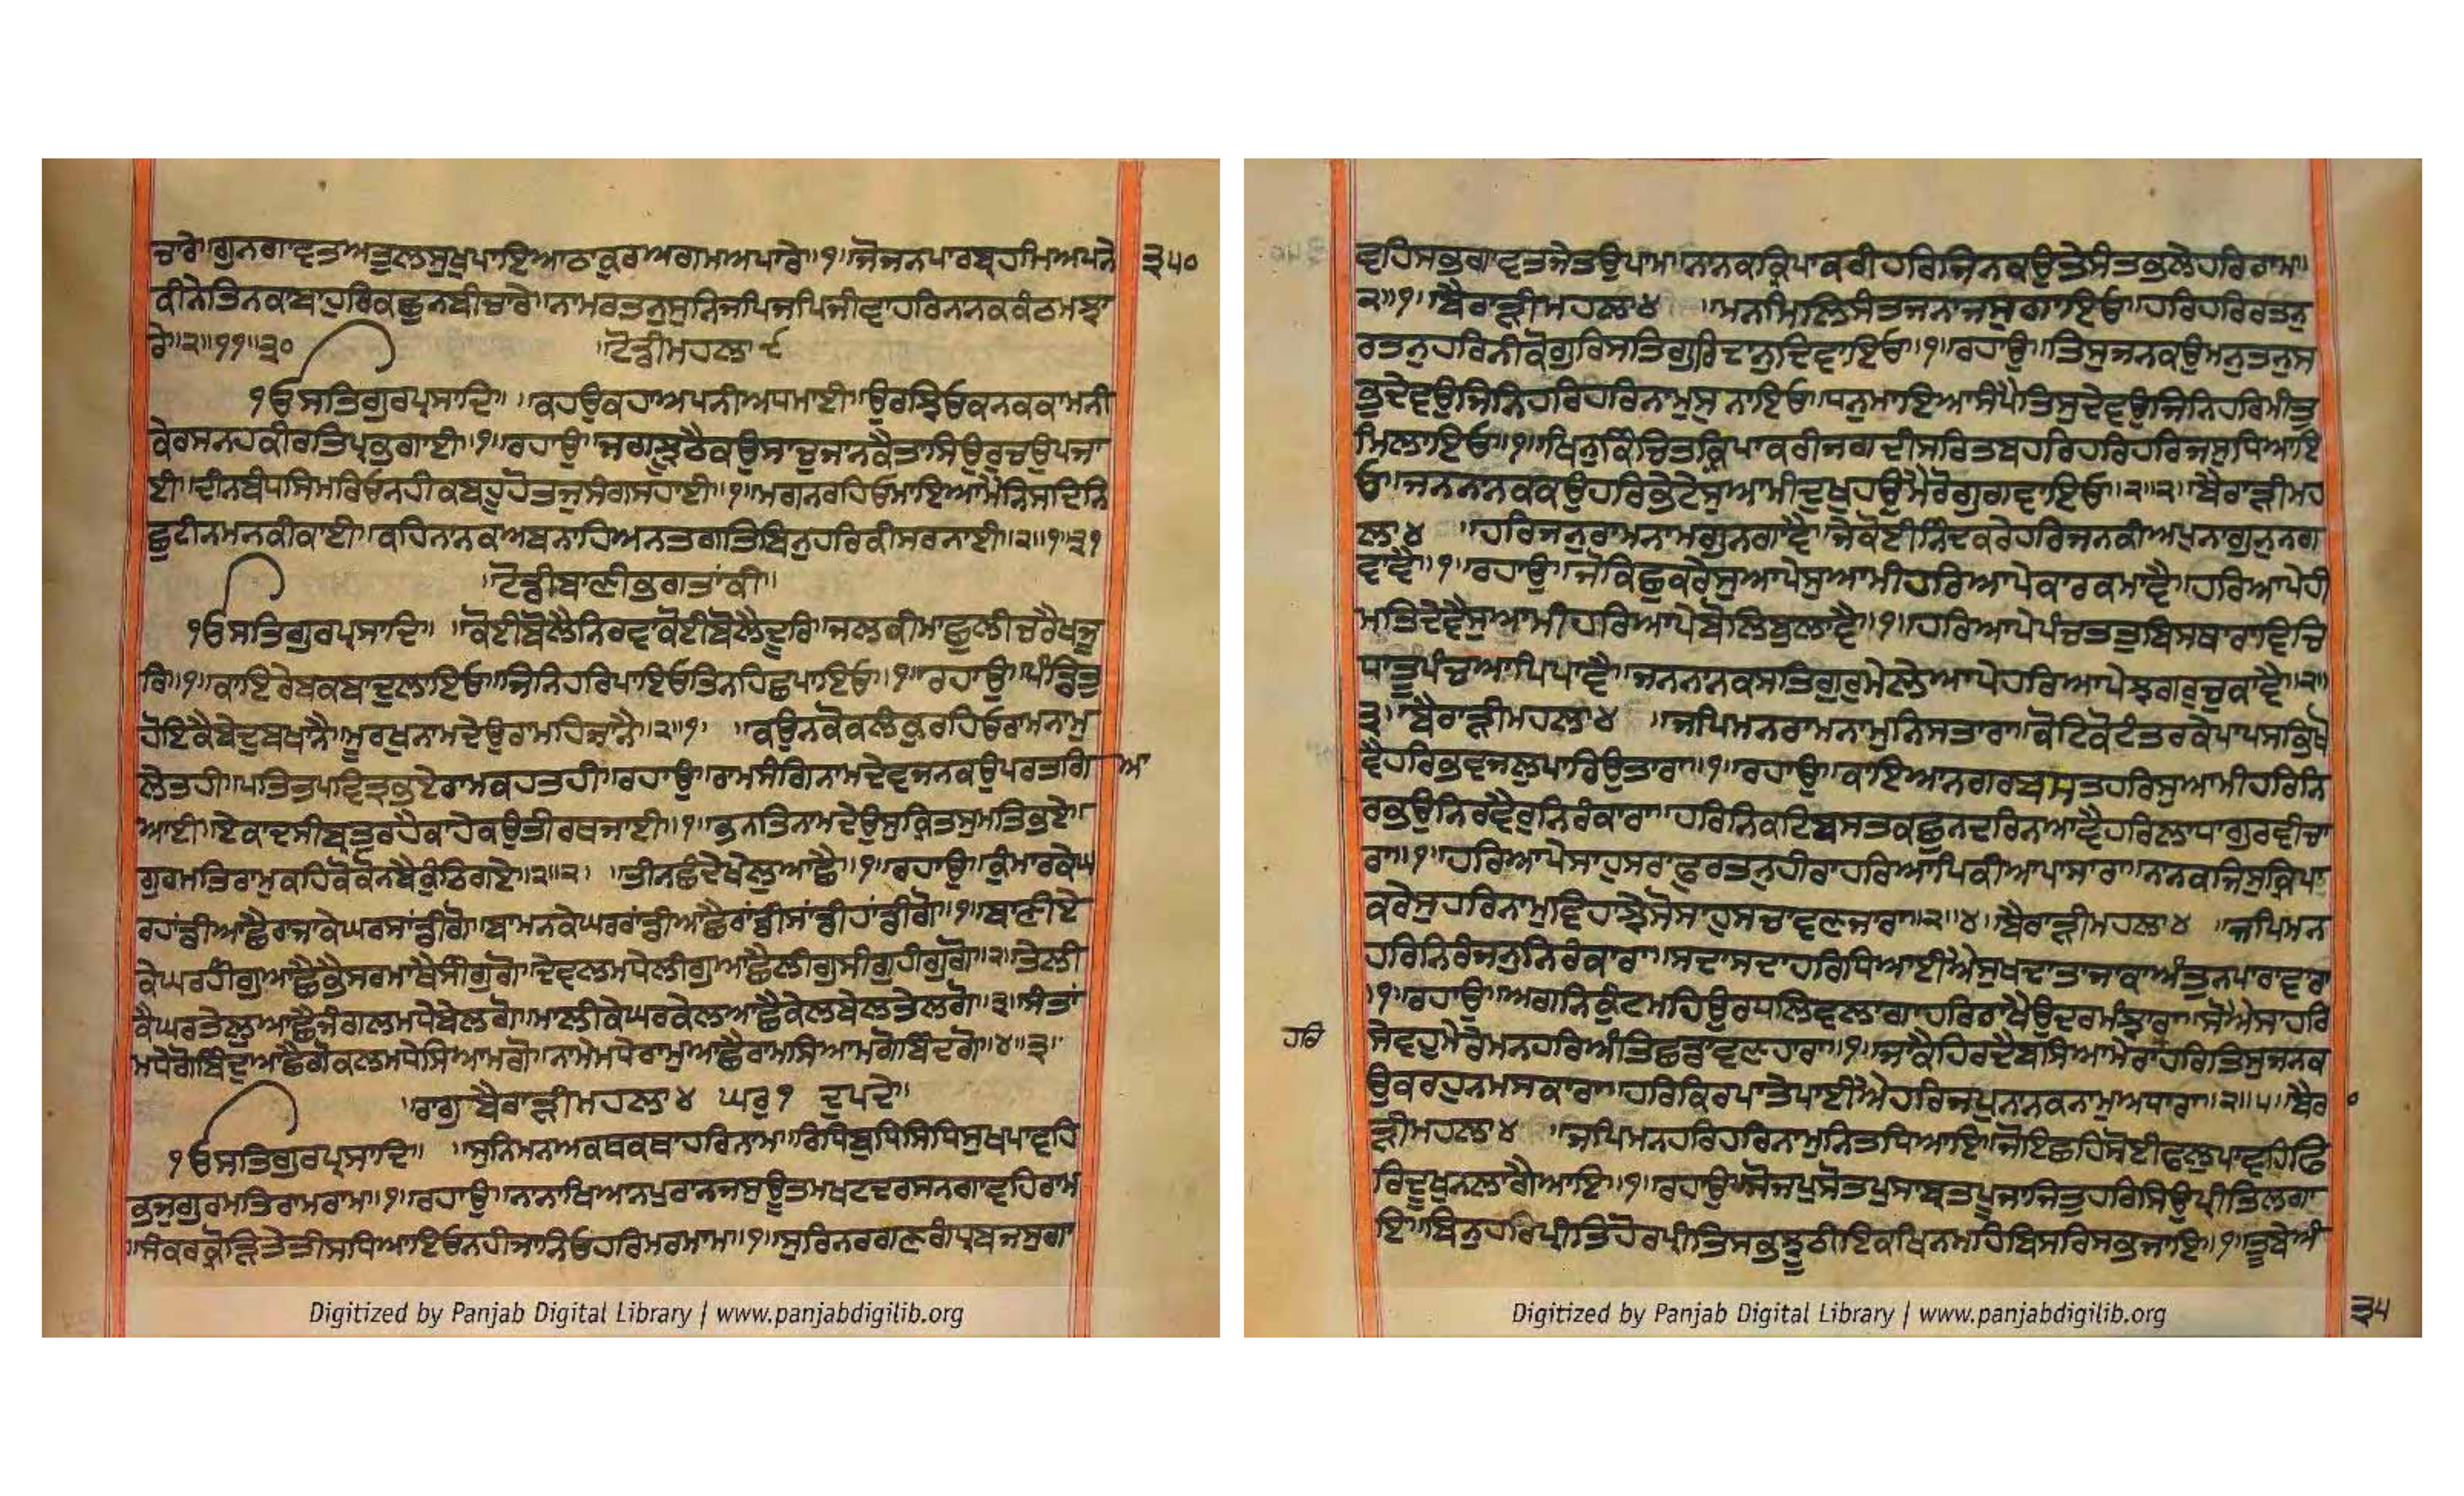 ਚਾਰੇ॥ਗੁਨਗਾਵਤਅਤੁਲਸੁਖੁਪਾਇਆਠਾਕੁਰਅਗਮਅਪਾਰੇ॥੧॥ਜੋਜਨਪਾਰਬ੍ਰਹਮਿਅਪਨੇ
੩੫੦
ਕੀਨੇਤਿਨਕਾਬਾਹੁਰਿਕਛੁਨਬੀਚਾਰੇ॥ਨਾਮਰਤਨੁਸੁਨਿਜਪਿਜਪਿਜੀਵਾਹਰਿਨਾਨਕਕੰਠਮਝਾ
ਰੇ॥੨॥੧੧॥੩੦
॥ਟੋਡੀਮਹਲਾ੯
੧ਓਸਤਿਗੁਰਪ੍ਰਸਾਦਿ॥ ॥ਕਹਉਕਹਾਅਪਨੀਅਧਮਾਈ॥ਉਰਝਿਓਕਨਕਕਾਮਨੀ
ਕੇਰਸਨਹਕੀਰਤਿਪ੍ਰਭੁਗਾਈ॥੧॥ਰਹਾਉ॥ਜਗਝੂਠੈਕਉਸਾਚੁਜਾਨਕੈਤਾਸਿਉਰੁਚਉਪਜਾ
ਈ॥ਦੀਨਬੰਧਸਿਮਰਿਓਨਹੀਕਬਹੂਹੋਤਜੁਸੰਗਸਹਾਈ॥੧॥ਮਗਨਰਹਿਓਮਾਇਆਮੈਨਿਸਦਿਨਿ
ਛੁਟੀਨਮਨਕੀਕਾਈ॥ਕਹਿਨਾਨਕਅਬਨਾਹਿਅਨਤਗਤਿਬਿਨੁਹਰਿਕੀਸਰਨਾਈ॥੨॥੧॥੩੧
॥ਟੋਡੀਬਾਣੀਭਗਤਾਂਕੀ॥
੧ਓਸਤਿਗੁਰਪ੍ਰਸਾਦਿ॥ ॥ਕੋਈਬੋਲੈਨਿਰਵਾਕੋਈਬੋਲੈਦੂਰਿ॥ਜਲਕੀਮਾਛੁਲੀਚਰੈਖਜੂ
ਰਿ॥੧॥ਕਾਇਰੇਬਕਬਾਦੁਲਾਇਓ॥ਜਿਨਿਹਰਿਪਾਇਓਤਿਨਹਿਛਪਾਇਓ॥੧॥ਰਹਾਉ॥ਪੰਡਿਤੁ
ਹੋਇਕੈਬੇਦੁਬਖਾਨੈ॥ਮੂਰਖੁਨਾਮਦੇਉਰਾਮਹਿਜਾਨੈ॥੨॥੧॥ ॥ਕਉਨਕੋਕਲੰਕੁਰਹਿਓਰਾਮਨਾਮੁ
ਲੇਤਹੀ॥ਪਤਿਤਪਵਿਤ੍ਰਭਏਰਾਮਕਹਤਹੀ॥ਰਹਾਉ॥ਰਾਮਸੰਗਿਨਾਮਦੇਵਜਨਕਉਪਰਤਗਿ
ਆ
ਆਈ॥ਏਕਾਦਸੀਬ੍ਰਤੁਰਹੈਕਾਹੇਕਉਤੀਰਥਜਾਈ॥੧॥ਭਨਤਿਨਾਮਦੇਉਸੁਕ੍ਰਿਤਸੁਮਤਿਭਏ॥
ਗੁਰਮਤਿਰਾਮੁਕਹਿਕੋਕੋਨਬੈਕੁੰਠਿਗਏ॥੨॥੨॥ ॥ਤੀਨਛੰਦੇਖੇਲੁਆਛੈ॥੧॥ਰਹਾਉ॥ਕੁੰਮਾਰਕੇਘ
ਰਹਾਂਡੀਆਛੈਰਾਜਾਕੇਘਰਸਾਂਡੀਗੋ॥ਬਾਮਨਕੇਘਰਰਾਂਡੀਆਛੈਰਾਂਡੀਸਾਂਡੀਹਾਂਡੀਗੋ॥੧॥ਬਾਣੀਏ
ਕੇਘਰਹੀਂਗੁਆਛੈਭੈਸਰਮਾਥੈਸੀਂਗੁਗੋ॥ਦੇਵਲਮਧੇਲੀਗੁਆਛੈਲੀਗੁਸੀਗੁਹੀਗੁਗੋ॥੨॥ਤੇਲੀ
ਕੈਘਰਤੇਲੁਆਛੈਜੰਗਲਮਧੇਬੇਲਗੋ॥ਮਾਲੀਕੇਘਰਕੇਲਆਛੈਕੇਲਬੇਲਤੇਲਗੋ॥੩॥ਸੰਤਾਂ
ਮਧੇਗੋਬਿੰਦੁਆਛੈਗੋਕਲਮਧੇਸਿਆਮਗੋ॥ਨਾਮੇਮਧੇਰਾਮੁਆਛੈਰਾਮਸਿਆਮਗੋਬਿੰਦਗੋ॥੪॥੩॥
॥ਰਾਗੁਬੈਰਾੜੀਮਹਲਾ੪ ਘਰੁ੧ ਦੁਪਦੇ॥
੧ਓਸਤਿਗੁਰਪ੍ਰਸਾਦਿ॥ ॥ਸੁਨਿਮਨਅਕਥਕਥਾਹਰਿਨਾਮ॥ਰਿਧਿਬੁਧਿਸਿਧਿਸੁਖਪਾਵਹਿ
ਭਜੁਗੁਰਮਤਿਰਾਮਰਾਮ॥੧॥ਰਹਾਉ॥ਨਾਨਾਖਿਆਨਪੁਰਾਨਜਸੁਊਤਮਖਟਦਰਸਨਗਾਵਹਿਰਾਮ
॥ਸੰਕਰਕ੍ਰੋੜਿਤੇਤੀਸਧਿਆਇਓਨਹੀਜਾਨਿਓਹਰਿਮਰਮਾਮ॥੧॥ਸੁਰਿਨਰਗਣਗੰਧ੍ਰਬਜਸੁਗਾ
ਵਹਿਸਭਗਾਵਤਜੇਤਉਪਾਮ॥ਨਾਨਕਕ੍ਰਿਪਾਕਰੀਹਰਿਜਿਨਕਉਤੇਸੰਤਭਲੇਹਰਿਰਾਮ॥
੨॥੧॥ਬੈਰਾੜੀਮਹਲਾ੪ ॥ਮਨਮਿਲਿਸੰਤਜਨਾਜਸੁਗਾਇਓ॥ਹਰਿਹਰਿਰਤਨੁ
ਰਤਨੁਹਰਿਨੀਕੋਗੁਰਿਸਤਿਗੁਰਿਦਾਨੁਦਿਵਾਇਓ॥੧॥ਰਹਾਉ॥ਤਿਸੁਜਨਕਉਮਨੁਤਨੁਸ
ਭੁਦੇਵਉਜਿਨਿਹਰਿਹਰਿਨਾਮੁਸੁਨਾਇਓ॥ਧਨੁਮਾਇਆਸੰਪੈਤਿਸੁਦੇਵਉਜਿਨਿਹਰਿਮੀਤੁ
ਮਿਲਾਇਓ॥੧॥ਖਿਨੁਕਿੰਚਿਤਕ੍ਰਿਪਾਕਰੀਜਗਦੀਸਰਿਤਬਹਰਿਹਰਿਹਰਿਜਸੁਧਿਆਇ
ਓ॥ਜਨਨਾਨਕਕਉਹਰਿਭੇਟੇਸੁਆਮੀਦੁਖੁਹਉਮੈਰੋਗੁਗਵਾਇਓ॥੨॥੨॥ਬੈਰਾੜੀਮਹ
ਲਾ੪ ॥ਹਰਿਜਨੁਰਾਮਨਾਮਗੁਨਗਾਵੈ॥ਜੇਕੋਈਨਿੰਦਕਰੇਹਰਿਜਨਕੀਅਪੁਨਾਗੁਨੁਨਗ
ਵਾਵੈ॥੧॥ਰਹਾਉ॥ਜੋਕਿਛੁਕਰੇਸੁਆਪੇਸੁਆਮੀਹਰਿਆਪੇਕਾਰਕਮਾਵੈ॥ਹਰਿਆਪੇਹੀ
ਮਤਿਦੇਵੈਸੁਆਮੀਹਰਿਆਪੇਬੋਲਿਬੁਲਾਵੈ॥੧॥ਹਰਿਆਪੇਪੰਚਤਤੁਬਿਸਥਾਰਾਵਿਚਿ
ਧਾਤੂਪੰਚਆਪਿਪਾਵੈ॥ਜਨਨਾਨਕਸਤਿਗੁਰੁਮੇਲੇਆਪੇਹਰਿਆਪੇਝਗਰੁਚੁਕਾਵੈ॥੨॥
੩॥ਬੈਰਾੜੀਮਹਲਾ੪ ॥ਜਪਿਮਨਰਾਮਨਾਮੁਨਿਸਤਾਰਾ॥ਕੋਟਿਕੋਟੰਤਰਕੇਪਾਪਸਭਿਖੋ
ਵੈਹਰਿਭਵਜਲੁਪਾਰਿਉਤਾਰਾ॥੧॥ਰਹਾਉ॥ਕਾਇਆਨਗਰਬਸਤਹਰਿਸੁਆਮੀਹਰਿਨਿ
ਰਭਉਨਿਰਵੈਰੁਨਿਰੰਕਾਰਾ॥ਹਰਿਨਿਕਟਿਬਸਤਕਛੁਨਦਰਿਨਆਵੈਹਰਿਲਾਧਾਗੁਰਵੀਚਾ
ਰਾ॥੧॥ਹਰਿਆਪੇਸਾਹੁਸਰਾਫੁਰਤਨੁਹੀਰਾਹਰਿਆਪਿਕੀਆਪਾਸਾਰਾ॥ਨਾਨਕਜਿਸੁਕ੍ਰਿਪਾ
ਕਰੇਸੁਹਰਿਨਾਮੁਵਿਹਾਝੈਸੋਸਾਹੁਸਚਾਵਣਜਾਰਾ॥੨॥੪॥ਬੈਰਾੜੀਮਹਲਾ੪ ॥ਜਪਿਮਨ
ਹਰਿਨਿਰੰਜਨੁਨਿਰੰਕਾਰਾ॥ਸਦਾਸਦਾਹਰਿਧਿਆਈਐਸੁਖਦਾਤਾਜਾਕਾਅੰਤੁਨਪਾਰਾਵਾਰਾ
॥੧॥ਰਹਾਉ॥ਅਗਨਿਕੁੰਟਮਹਿਉਰਧਲਿਵਲਾਗਾਹਰਿਰਾਖੈਉਦਰਮੰਝਾਰਾ॥ਸੋਐਸਾਹਰਿ
ਹਰਿ
ਸੇਵਹੁਮੇਰੇਮਨਹਰਿਅੰਤਿਛਡਾਵਣਹਾਰਾ॥੧॥ਜਾਕੈਹਿਰਦੈਬਸਿਆਮੇਰਾਹਰਿਤਿਸੁਜਨਕ
ਉਕਰਹੁਨਮਸਕਾਰਾ॥ਹਰਿਕਿਰਪਾਤੇਪਾਈਐਹਰਿਜਪੁਨਾਨਕਨਾਮੁਅਧਾਰਾ॥੨॥੫॥ਬੈਰਾ
ੜੀਮਹਲਾ੪ ॥ਜਪਿਮਨਹਰਿਹਰਿਨਾਮੁਨਿਤਧਿਆਇ॥ਜੋਇਛਹਿਸੋਈਫਲੁਪਾਵਹਿਫਿ
ਰਿਦੂਖੁਨਲਾਗੈਆਇ॥੧॥ਰਹਾਉ॥ਸੋਜਪੁਸੋਤਪੁਸਾਬ੍ਰਤਪੂਜਾਜਿਤੁਹਰਿਸਿਉਪ੍ਰੀਤਿਲਗਾ
ਇ॥ਬਿਨੁਹਰਿਪ੍ਰੀਤਿਹੋਰਪ੍ਰੀਤਿਸਭਝੂਠੀਇਕਖਿਨਮਹਿਬਿਸਰਿਸਭਜਾਇ॥੧॥ਤੂਬੇਅੰ
੩੫
Digitized by Panjab Digital Library | www.panjabdigilib.org
Digitized by Panjab Digital Library | www.panjabdigilib.org